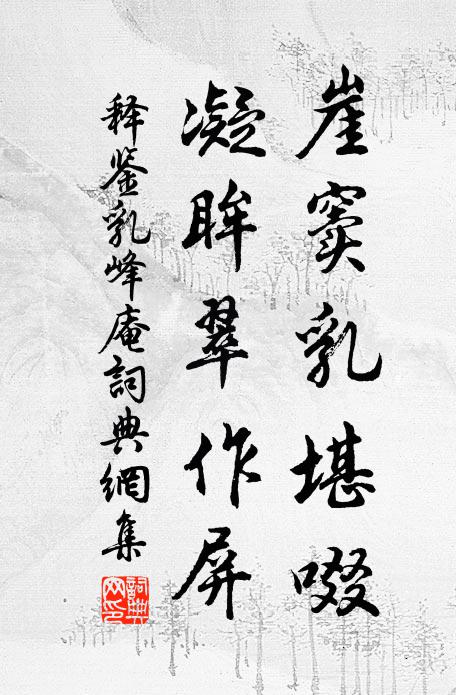 崖窦乳堪啜
凝眸翠作屏
释鉴乳峰庵詞典網集
詞典網印